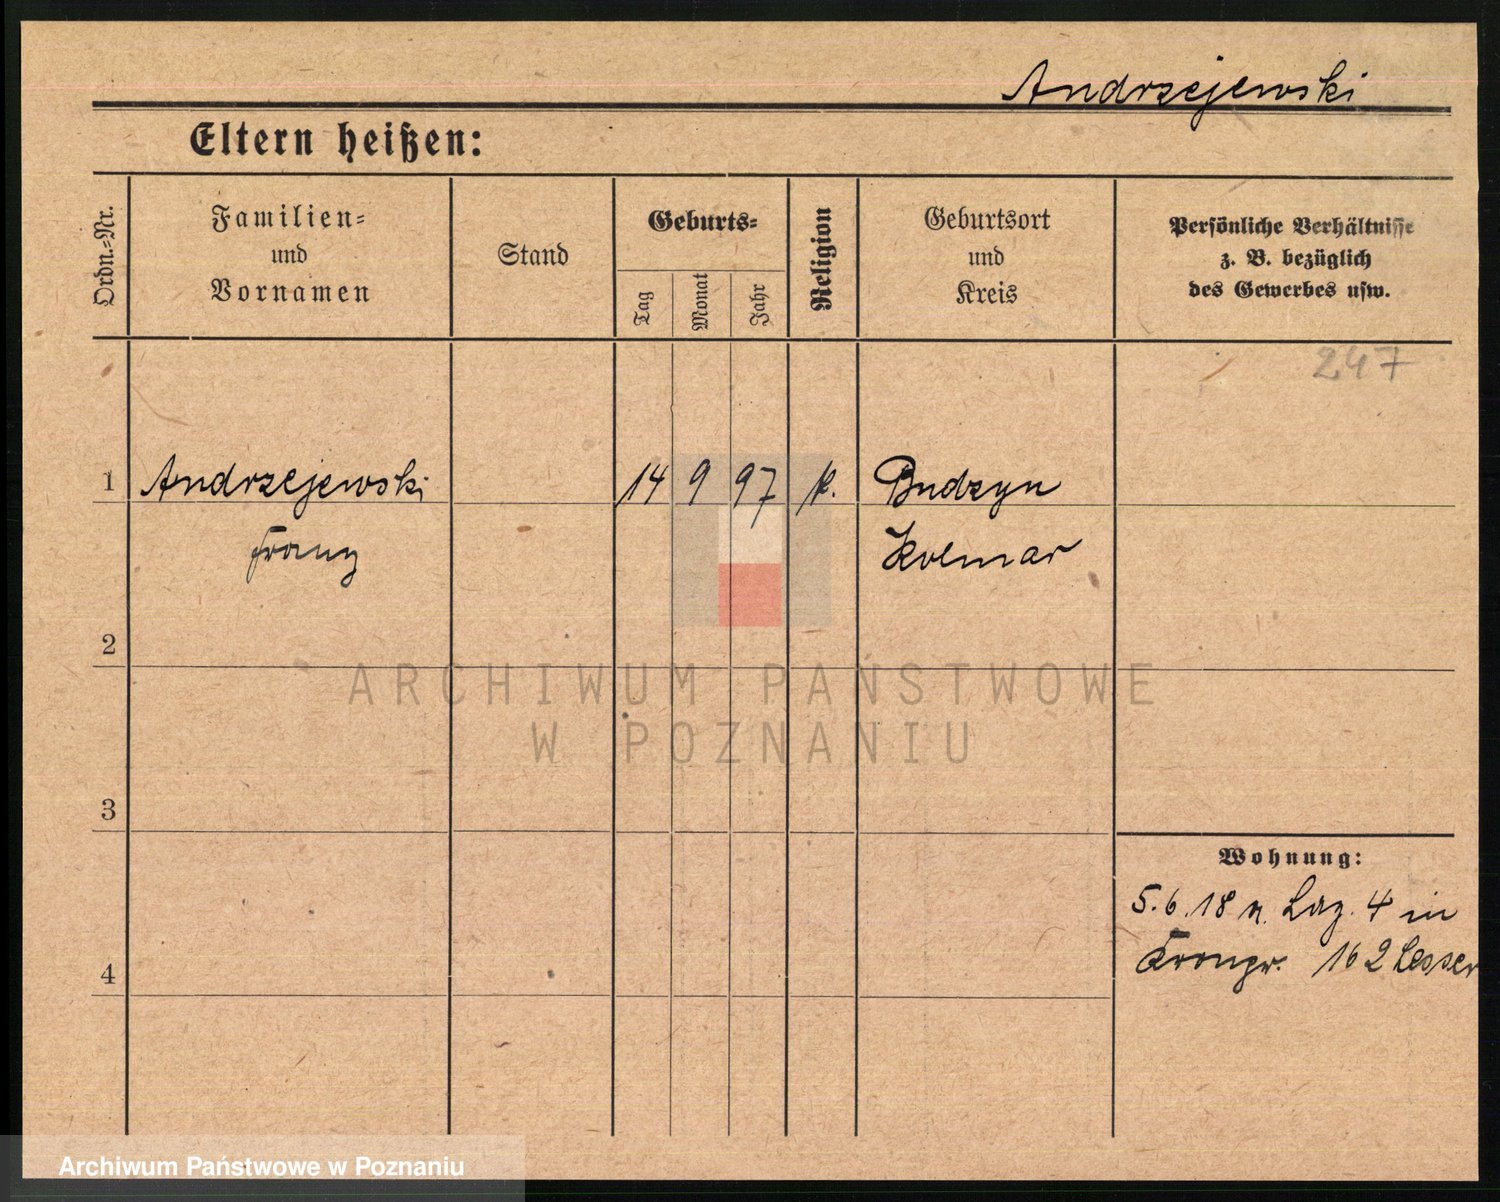 Andrzejewski
Eltern heißen:
Ordn.-Nr.
Familien-
und
Vornamen
Stand
Geburts-
Tag
Monat
Jahr
Religion
Geburtsort
und
Kreis
Persönliche Verhältnisse
z. B. bezüglich
des Gewerbes usw.
247
1 Andrzejewski 14 9 97 k. Budzyn
Franz Kolmar
2
ARCHIWUM PAŃSTWOWE
W POZNANIU
3
Wohnung:
5.6.18 n. Laz. 4 in
Kronpr. 162 Lesser
4
Archiwum Państwowe w Poznaniu